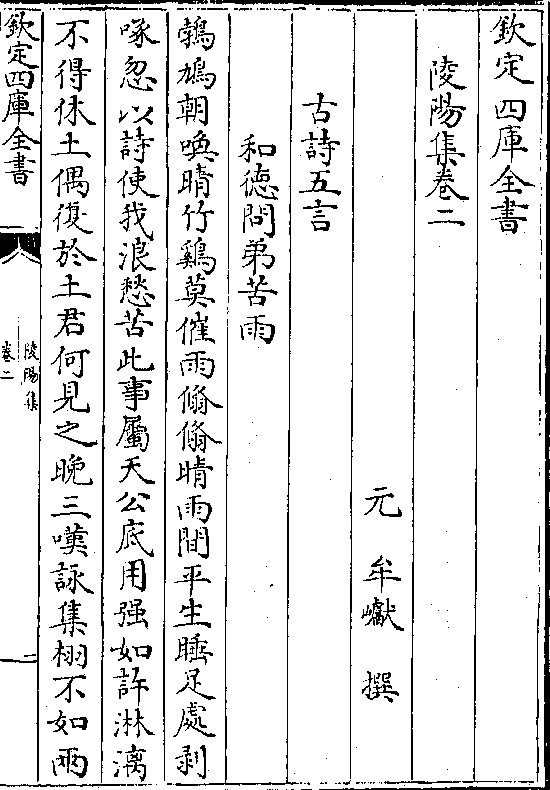 欽定四庫全書
陵陽集卷二
元 牟巘 撰
古詩五言
和徳問弟苦雨
鵓鳩朝喚晴竹鷄莫催雨翛翛晴雨間平生睡足處剥
啄忽以詩使我浪愁苦此事屬天公底用强如許淋漓
不得休土偶復於土君何見之晚三嘆詠集栩不如兩
欽定四庫全書
陵陽集
卷二
一